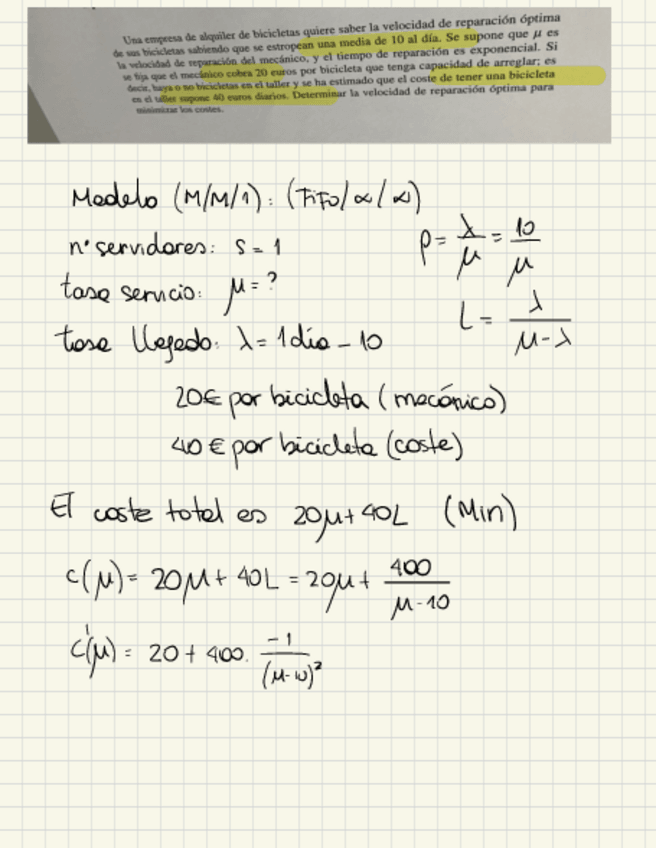 Una empresa de alquiler de bicicletas quiere saber la velocidad de reparación óptima
de sus bicicletas sabiendo que se estropean una media de 10 al día. Se supone que μ es
la velocidad de reparación del mecánico, y el tiempo de reparación es exponencial. Si
se fija que el mecánico cobra 20 euros por bicicleta que tenga capacidad de arreglar; es
decir, haya o no bicicletas en el taller y se ha estimado que el coste de tener una bicicleta
en el taller supone 40 euros diarios. Determinar la velocidad de reparación óptima para
minimizar los costes.
Modelo (M/M/1): (FiFo/∝/∝)
nº servidores: s = 1
ρ = λ/μ = 10/μ
tasa servicio: μ = ?
L = λ/(μ-λ)
tasa llegada: λ = 1 día - 10
20€ por bicicleta (mecánico)
40 € por bicicleta (coste)
El coste total es 20μ + 40L (Min)
C(μ) = 20μ + 40L = 20μ + 400/(μ-10)
C'(μ) = 20 + 400. -1/(μ-10)²